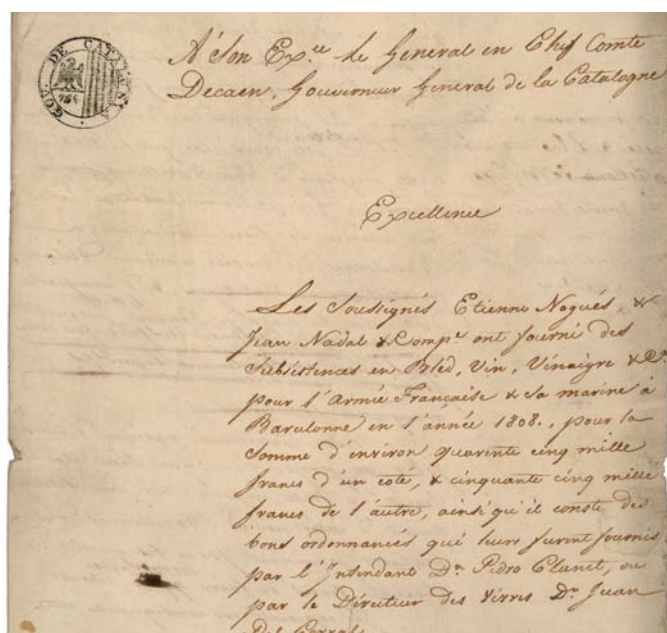 GOV. DE CATALUÑA
75 c
A' Son Ex.ce Le General en Chef Comte
Decaen, Gouverneur General de la Catalogne
Excellence
Les Soussignés Etienne Nogués, &
Jean Nadal & Comp.e ont fourni des
Subsistences en Bléd, Vin, Vinaigre & C.a
pour l'Armée Française & sa marine à
Barcelonne en l'année 1808., pour la
Somme d'environ quarente cinq mille
francs d'un coté, & cinquante cinq mille
francs de l'autre, ainsi qu'il conste des
bons ordonnancés qué leurs furent fournis
par l'Intendant D.n Pedro Clanet, ou
par le Directeur des Vivres D.n Juan
Del Corral